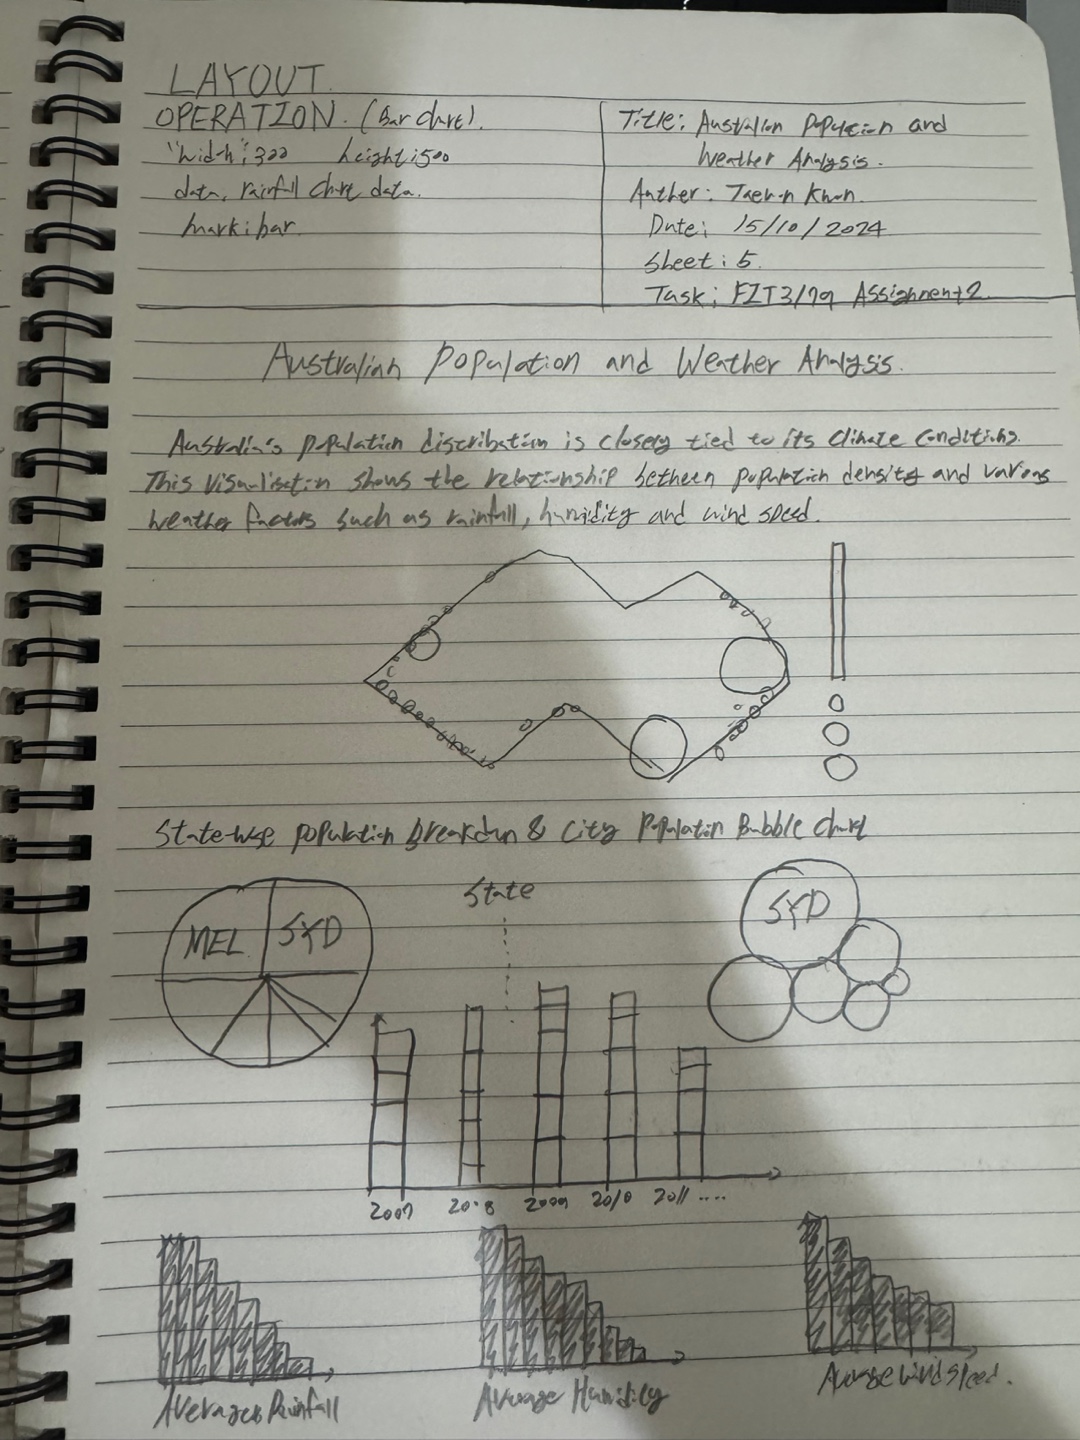 LAYOUT.
OPERATION. (Bar chart).
"width": 300 height: 500
data, rainfall chart data.
mark: bar.
Title: Australian Population and
Weather Analysis.
Author: Taeyun Kwon.
Date: 15/10/2024
Sheet: 5.
Task: FIT3179 Assignment 2.
Australian Population and Weather Analysis.
Australia's population distribution is closely tied to its climate conditions.
This visualisation shows the relationship between population density and various
weather factors such as rainfall, humidity and wind speed.
State-wise population breakdown & City Population Bubble chart
MEL
SYD
State
SYD
2007 2008 2009 2010 2011 ....
Average Rainfall
Average Humidity
Average wind speed.